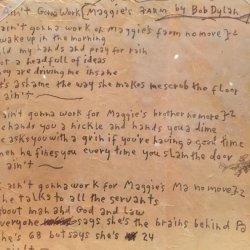 Ain't Gonna Work (Maggie's FARM) by Bob Dylan
ain't gonna work on Maggie's farm no more
wake up in the morning
old my hands and pray for rain
ot a headfull of ideas
they are driving me insane
t's a shame the way she makes me scrub the floor
ain't
ain't gonna work for Maggie's brother no more
hands you a nickle and hands you a dime
asks you with a grin if you're having a good time
hen he fines you every time you slam the door
ain't
ain't gonna work for Maggie's Ma no more
he talks to all the servants
about man and God and law
everyone says she's the brains behind Pa
he's 68 but says she's 24
ain't